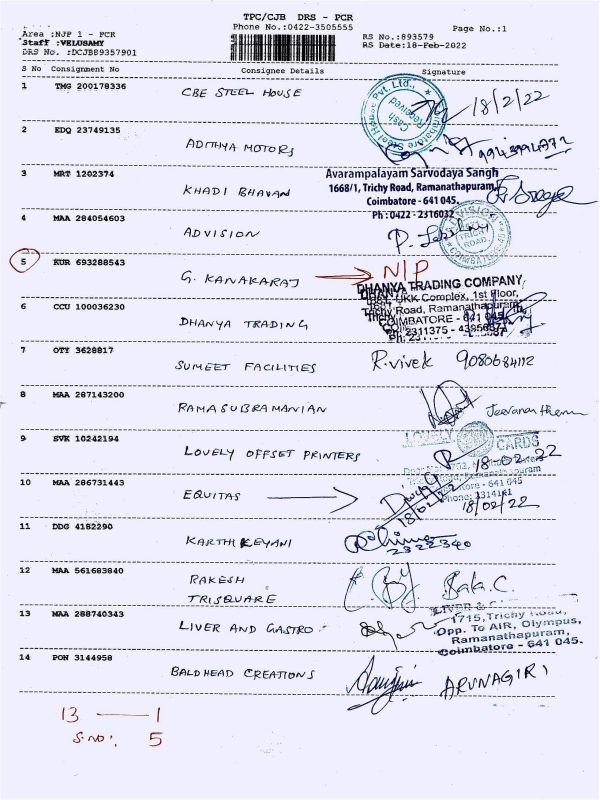 TPC/CJB DRS - PCR
Area :NJP 1 - PCR Phone No.:0422-3505555 Page No.:1
Staff :VELUSAMY RS No.:893579
DRS No. :DCJB89357901 RS Date:18-Feb-2022
S No Consignment No Consignee Details Signature
1 TMG 200178336 CBE STEEL HOUSE 18/2/22
Steel House Pvt. Ltd.,
Cash
Received
2 EDQ 23749135 ADITHYA MOTORS
3 MRT 1202374 KHADI BHAVAN
Avarampalayam Sarvodaya Sangh
1668/1, Trichy Road, Ramanathapuram,
Coimbatore - 641 045.
Ph : 0422 - 2316032
4 MAA 284054603 ADVISION
TRICHY
ROAD
5 KUR 693288543 G. KANAKARAJ N/P
6 CCU 100036230 DHANYA TRADING
DHANYA TRADING COMPANY
UKK Complex, 1st Floor,
Trichy Road, Ramanathapuram,
COIMBATORE - 641 045
7 OTY 3628817 SUMEET FACILITIES R. vivek 9080684112
8 MAA 287143200 RAMASUBRAMANIAN
9 SVK 10242194 LOVELY OFFSET PRINTERS 18-02-22
LOVELY CARDS
10 MAA 286731443 EQUITAS 18/02/22 18/02/22
11 DDG 4182290 KARTHIKEYANI 2322340
12 MAA 561683840 RAKESH
TRISQUARE
13 MAA 288740343 LIVER AND GASTRO
LIVER &
1715, Trichy Road,
Opp. To AIR, Olympus,
Ramanathapuram,
Coimbatore - 641 045.
14 PON 3144958 BALDHEAD CREATIONS ARUNAGIRI
13 — 1
S.NO: 5